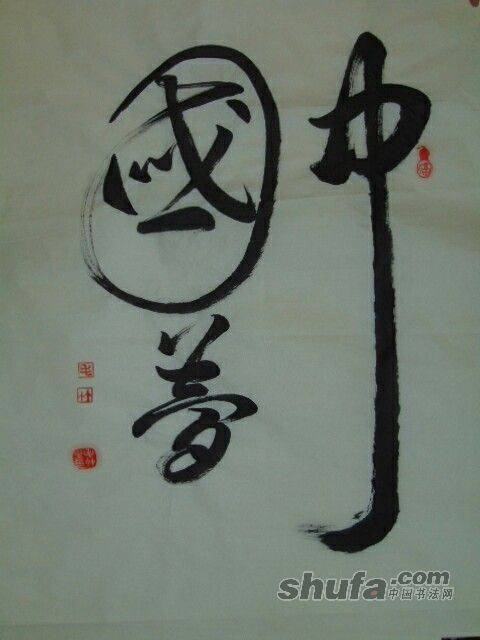 中
國夢
shufa.com
中国书法网